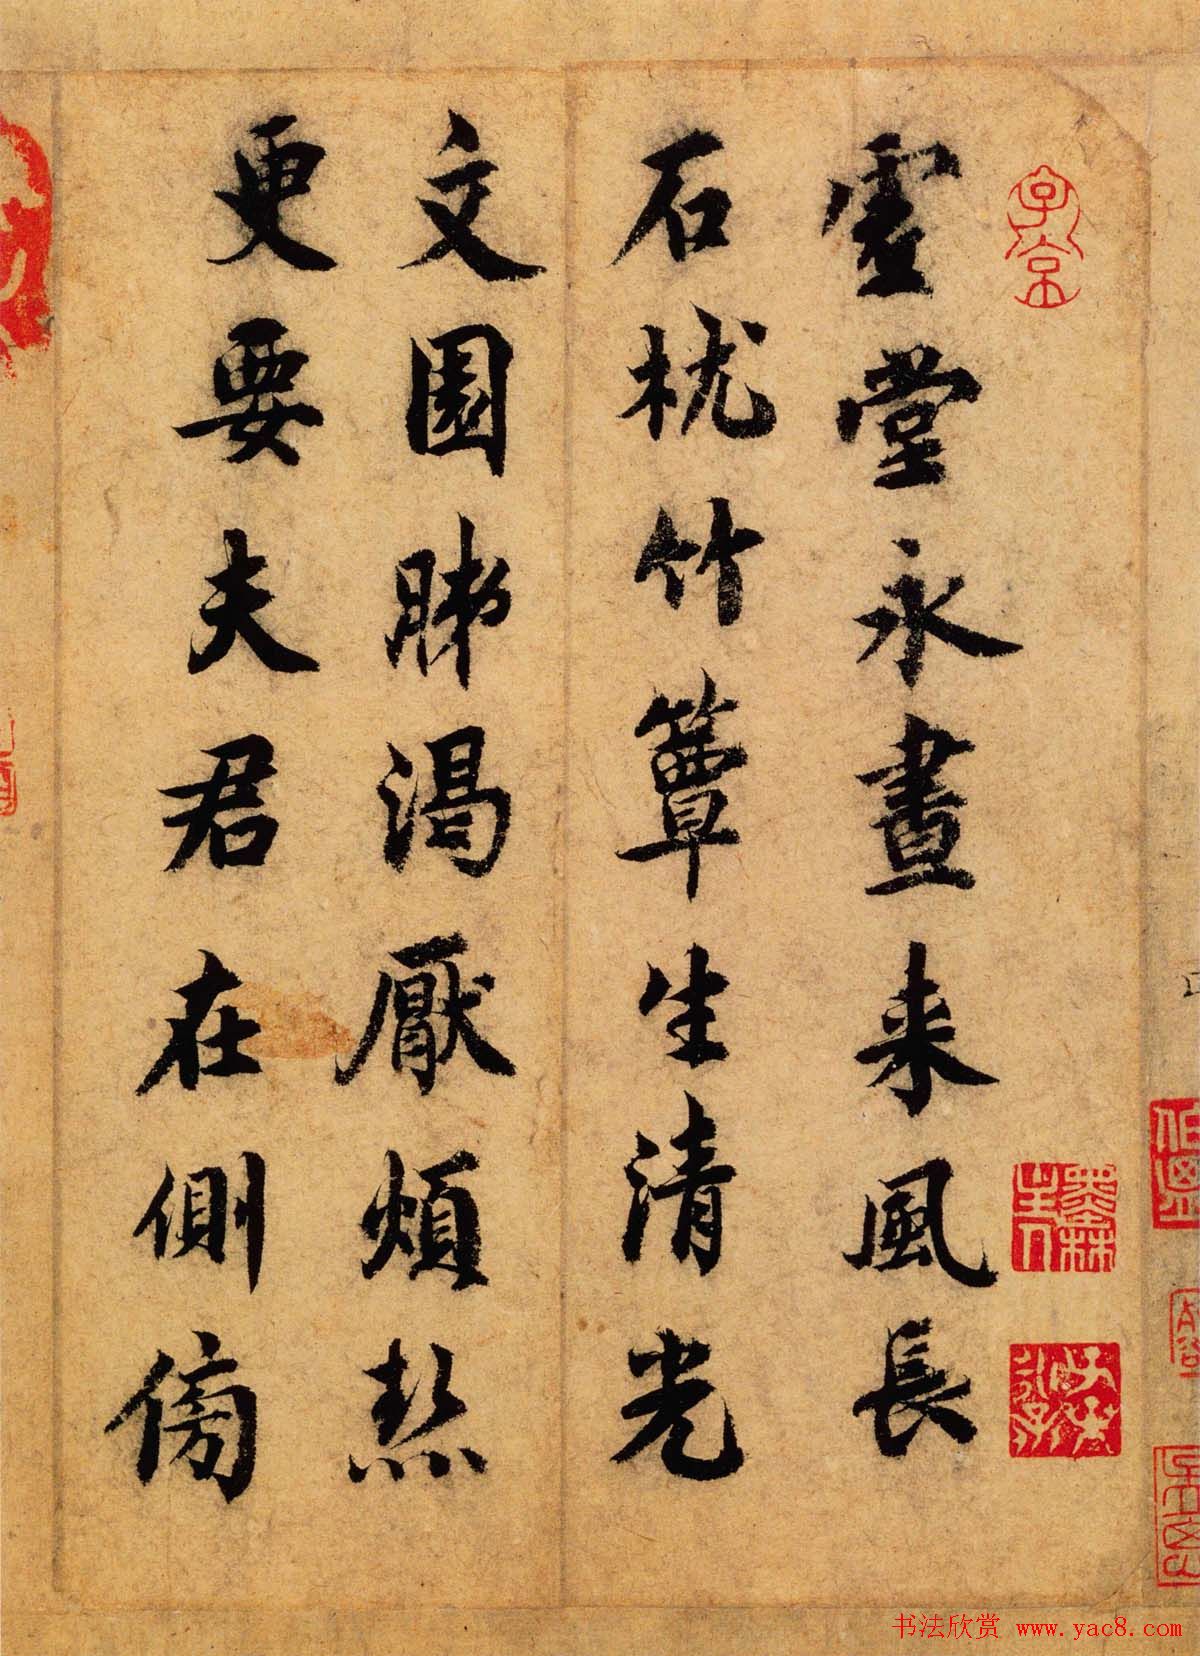 虛堂永晝来風長
石枕竹簟生清光
文園肺渴厭煩熱
更要夫君在側傍
子京
书法欣赏 www.yac8.com